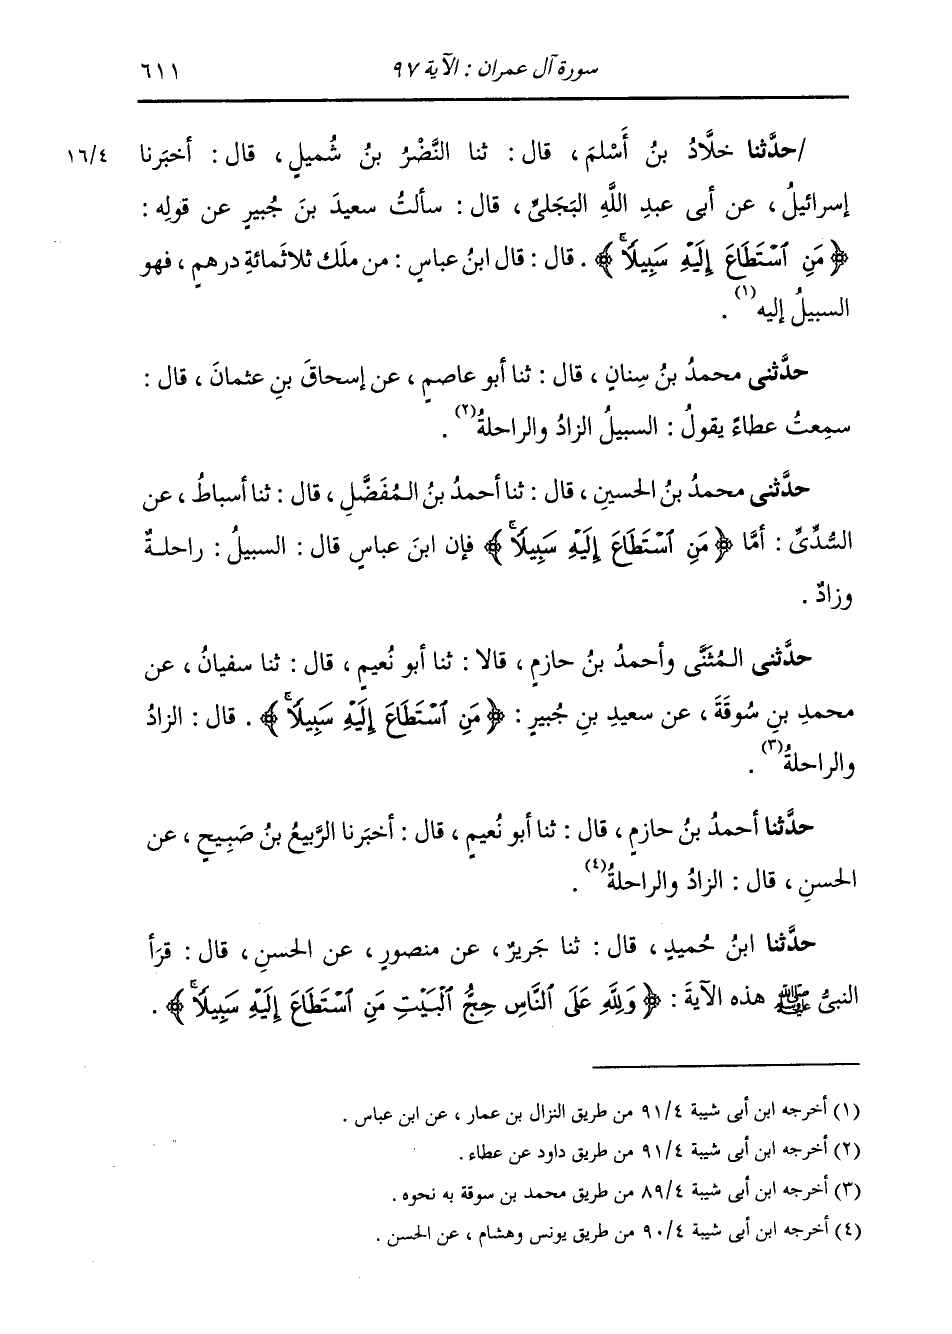 سورة آل عمران : الآية ٩٧ ٦١١
/حدَّثنا خلَّادُ بنُ أَسْلمَ ، قال : ثنا النَّضْرُ بنُ شُميلٍ ، قال : أخبَرنا ١٦/٤
إسرائيلُ ، عن أبى عبدِ اللَّهِ البَجَلىِّ ، قال : سألتُ سعيدَ بنَ جُبيرٍ عن قولِه :
﴿ مَنِ ٱسْتَطَاعَ إِلَيْهِ سَبِيلًاۚ ﴾ . قال : قال ابنُ عباسٍ : من ملَك ثلاثَمائةِ درهمٍ ، فهو
السبيلُ إليه(١) .
حدَّثنى محمدُ بنُ سِنانٍ ، قال : ثنا أبو عاصمٍ ، عن إسحاقَ بنِ عثمانَ ، قال :
سمِعتُ عطاءً يقولُ : السبيلُ الزادُ والراحلةُ(٢) .
حدَّثنى محمدُ بنُ الحسينِ ، قال : ثنا أحمدُ بنُ المُفَضَّلِ ، قال : ثنا أسباطُ ، عن
السُّدِّىِّ : أمَّا ﴿ مَنِ ٱسْتَطَاعَ إِلَيْهِ سَبِيلًاۚ ﴾ فإن ابنَ عباسٍ قال : السبيلُ : راحلةٌ
وزادٌ .
حدَّثنى المُثَنَّى وأحمدُ بنُ حازمٍ ، قالا : ثنا أبو نُعيمٍ ، قال : ثنا سفيانُ ، عن
محمدِ بنِ سُوقَةَ ، عن سعيدِ بنِ جُبيرٍ : ﴿ مَنِ ٱسْتَطَاعَ إِلَيْهِ سَبِيلًاۚ ﴾ . قال : الزادُ
والراحلةُ(٣) .
حدَّثنا أحمدُ بنُ حازمٍ ، قال : ثنا أبو نُعيمٍ ، قال : أخبَرنا الرَّبيعُ بنُ صَبِيحٍ ، عن
الحسنِ ، قال : الزادُ والراحلةُ(٤) .
حدَّثنا ابنُ حُميدٍ ، قال : ثنا جَريرٌ ، عن منصورٍ ، عن الحسنِ ، قال : قرَأ
النبىُّ ﷺ هذه الآيةَ : ﴿ وَلِلَّهِ عَلَى ٱلنَّاسِ حِجُّ ٱلْبَيْتِ مَنِ ٱسْتَطَاعَ إِلَيْهِ سَبِيلًاۚ ﴾ .
(١) أخرجه ابن أبى شيبة ٩١/٤ من طريق النزال بن عمار ، عن ابن عباس .
(٢) أخرجه ابن أبى شيبة ٩١/٤ من طريق داود عن عطاء .
(٣) أخرجه ابن أبى شيبة ٨٩/٤ من طريق محمد بن سوقة به نحوه .
(٤) أخرجه ابن أبى شيبة ٩٠/٤ من طريق يونس وهشام ، عن الحسن .